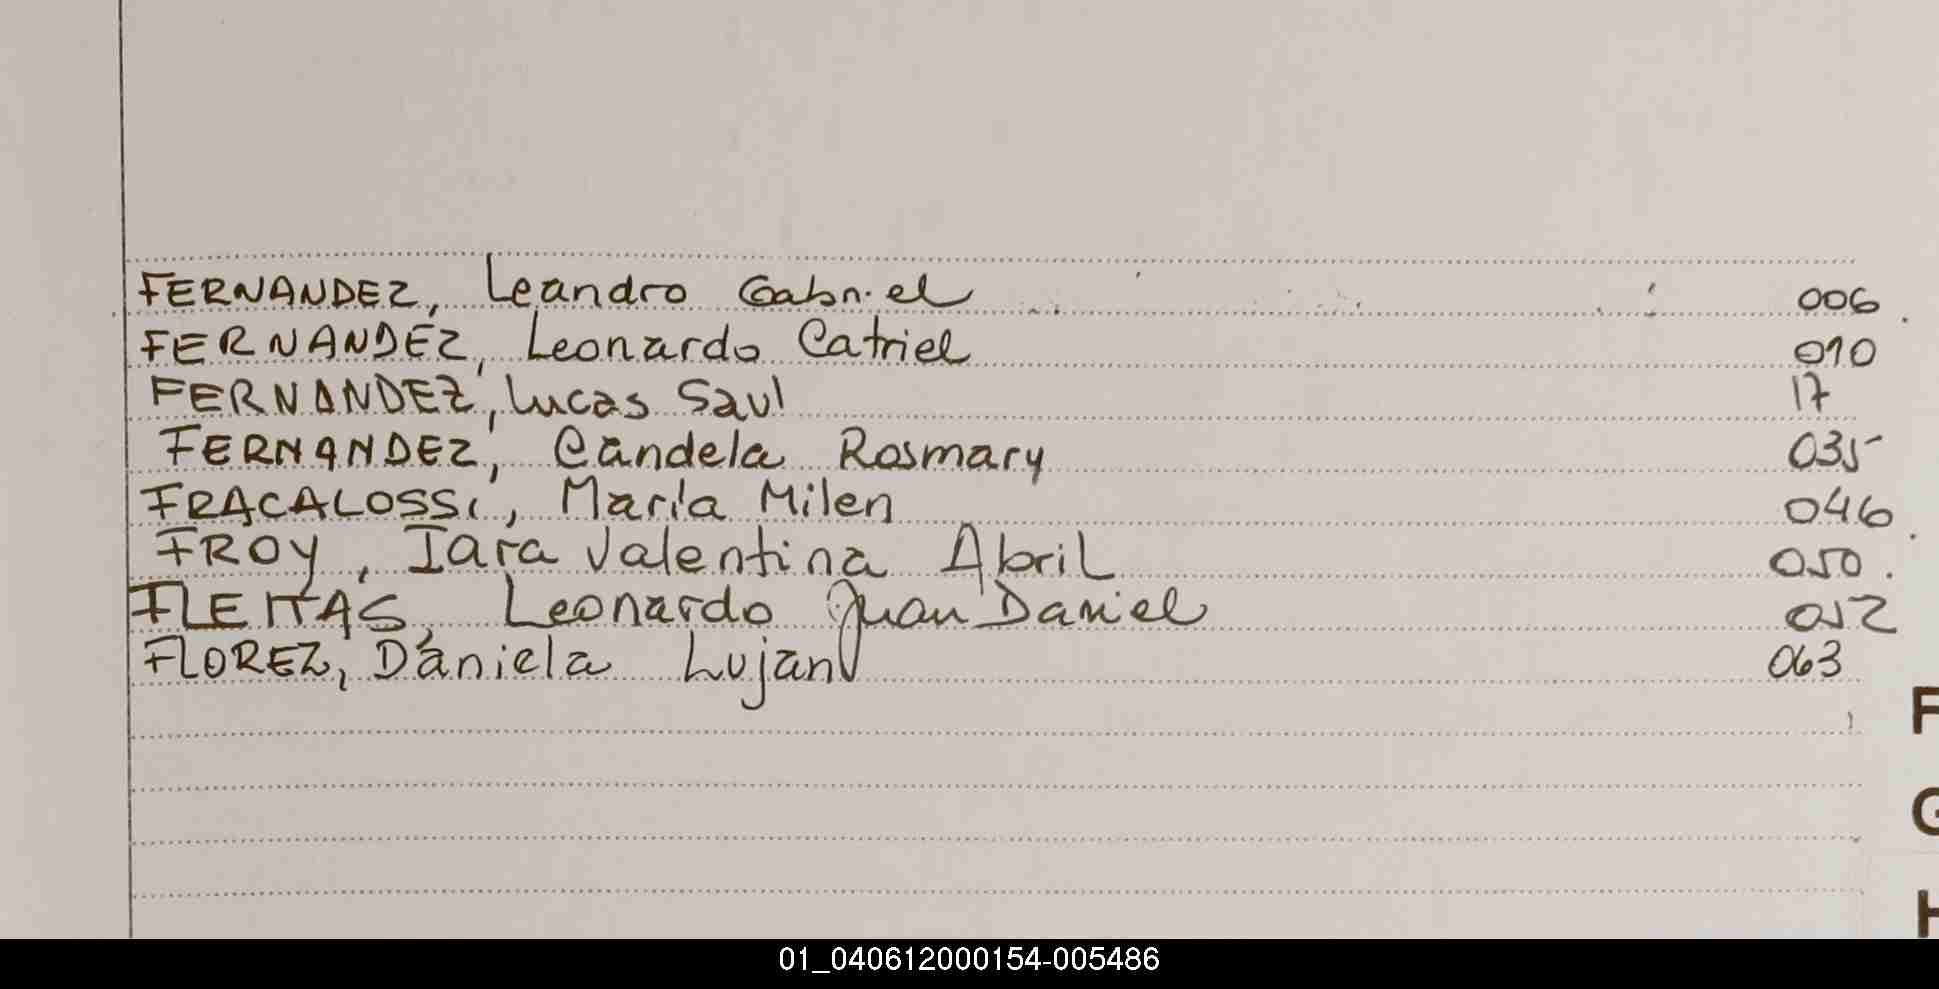 FERNANDEZ, Leandro Gabriel 006
FERNANDEZ, Leonardo Catriel 010
FERNANDEZ, Lucas Saul 17
FERNANDEZ, Candela Rosmary 035
FRACALOSSI, María Milen 046
FROY, Iara Valentina Abril 050
FLEITAS, Leonardo Juan Daniel 052
FLOREZ, Daniela Lujan 063
F
G
H
01_040612000154-005486